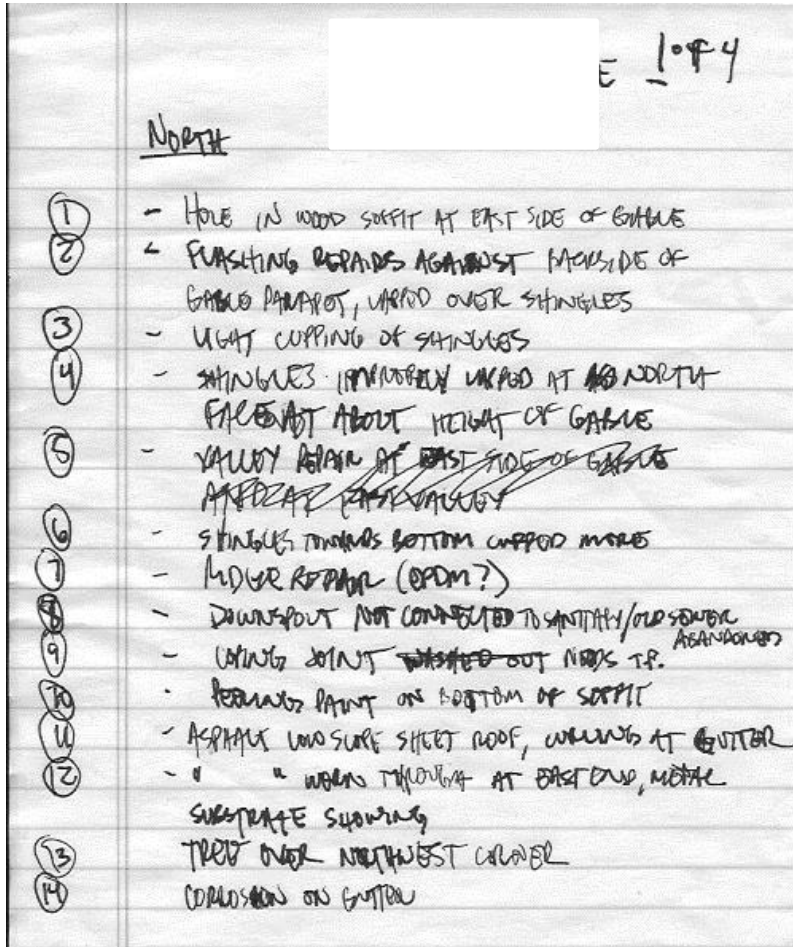 E 1 of 4
NORTH
1 - HOLE IN WOOD SOFFIT AT EAST SIDE OF GABLE
2 - FLASHING REPAIRS AGAINST BACKSIDE OF
GABLE PARAPET, LAPPED OVER SHINGLES
3 - LIGHT CUPPING OF SHINGLES
4 - SHINGLES IMPROPERLY LAPPED AT NORTH
FACE AT ABOUT HEIGHT OF GABLE
5 - VALLEY REPAIR AT EAST SIDE OF GABLE
AND AT EAST VALLEY
6 - SHINGLES TOWARDS BOTTOM CUPPED MORE
7 - REPAIR (EPDM?)
8 - DOWNSPOUT NOT CONNECTED TO SANITARY/OLD SEWER
ABANDONED
9 - COPING JOINT WASHED OUT NEEDS T.P.
10 - PEELING PAINT ON BOTTOM OF SOFFIT
11 - ASPHALT LOW SLOPE SHEET ROOF, CURLING AT GUTTER
12 - " " WORN THROUGH AT EAST END, METAL
SUBSTRATE SHOWING
13 TREE OVER NORTHWEST CORNER
14 CORROSION ON GUTTER